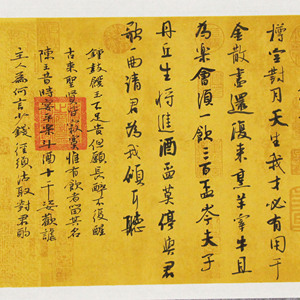 樽空對月天生我才必有用千
金散盡還復來烹羊宰牛且
為樂會須一飲三百盃岑夫子
丹丘生將進酒盃莫停與君
歌一曲請君為我傾耳聽
鐘鼓饌玉不足貴但願長醉不復醒
古來聖賢皆寂寞惟有飲者留其名
陳王昔時宴平樂斗酒十千恣歡謔
主人為何言少錢徑須沽取對君酌